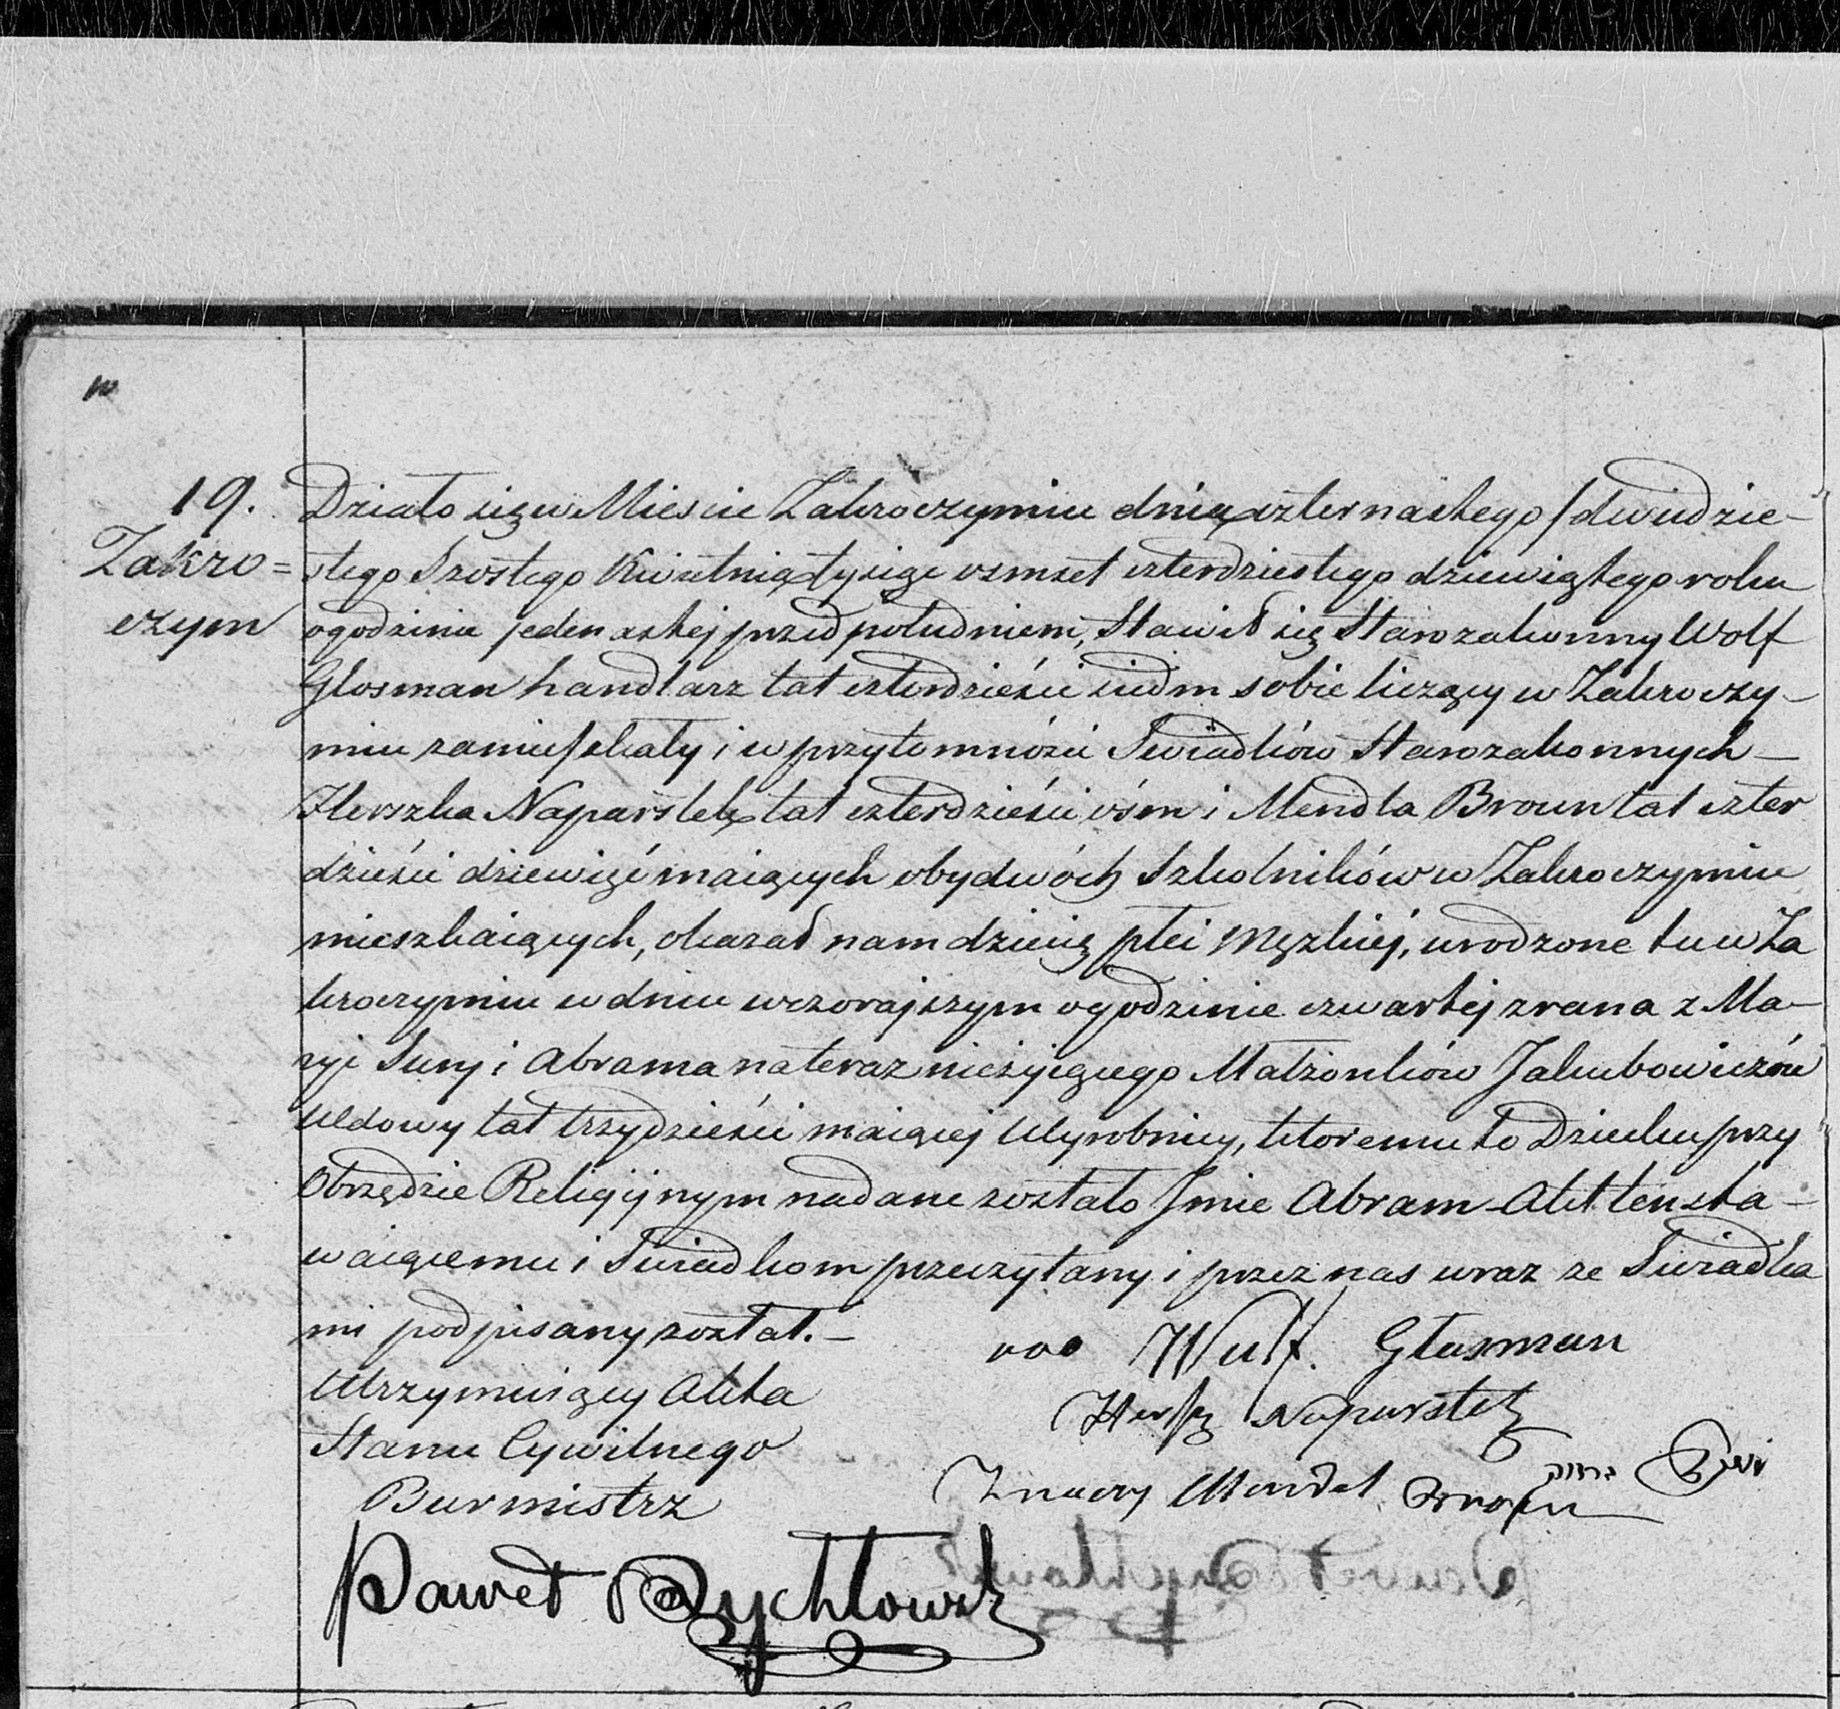 19.
Zakro=
czym
Działo się w Mieście Zakroczymiu dnia czternastego /dwudzie-
stego Szostego Kwietnia tysiąc osmset czterdziestego dziewiątego roku
ogodzinie jedenastej przed południem, Stawił się Starozakonny Wolf
Glosman handlarz lat czterdzieści siedm sobie liczący w Zakroczy-
miu zamieszkały i w przytomności Swiadków Starozakonnych -
Herszka Naparstek lat czterdzieści ośm i Mendla Broun lat czter
dzieści dziewięć maiących obydwóch Szkolników w Zakroczymiu
mieszkaiących, okazał nam dziecię płci Męzkiéj, urodzone tu w Za
kroczymiu w dniu wczorajszym ogodzinie czwartej zrana z Ma-
ryi Sury i Abrama na teraz nieżyiącego Małżonków Jakubowiczów
Wdowy lat trzydzieści maiącej Wyrobnicy, któremu to Dziecku przy
Obrzędzie Religijnym nadane zostało Jmie Abram - Akt ten sta-
waiącemu i Swiadkom przeczytany i przez nas wraz ze Swiadka
mi podpisany został. -
Utrzymuiący Akta
Stanu Cywilnego
Burmistrz
Paweł Rychłowsk
Wulf. Glasman
Hersz Naparstek
Znaczy Mendel